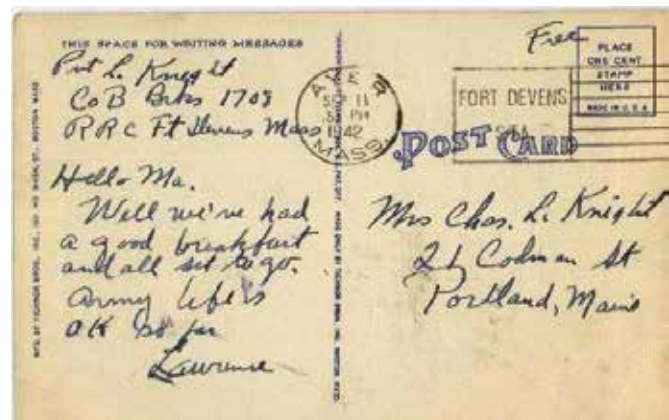 THIS SPACE FOR WRITING MESSAGES
Pvt L. Knight
Co B Brks 1708
R R C Ft Devens Mass
Hello Ma.
Well we've had
a good breakfast
and all set to go.
Army life is
OK so far
Lawrence
AYER
11
PM
1942
MASS.
FORT DEVENS
Free
PLACE
ONE CENT
STAMP
HERE
MADE IN U.S.A.
POST CARD
Mrs Chas. L. Knight
Codman St
Portland, Maine